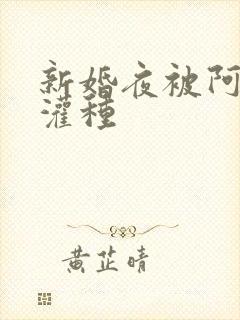 新婚夜被阿
灌種
黄芷晴